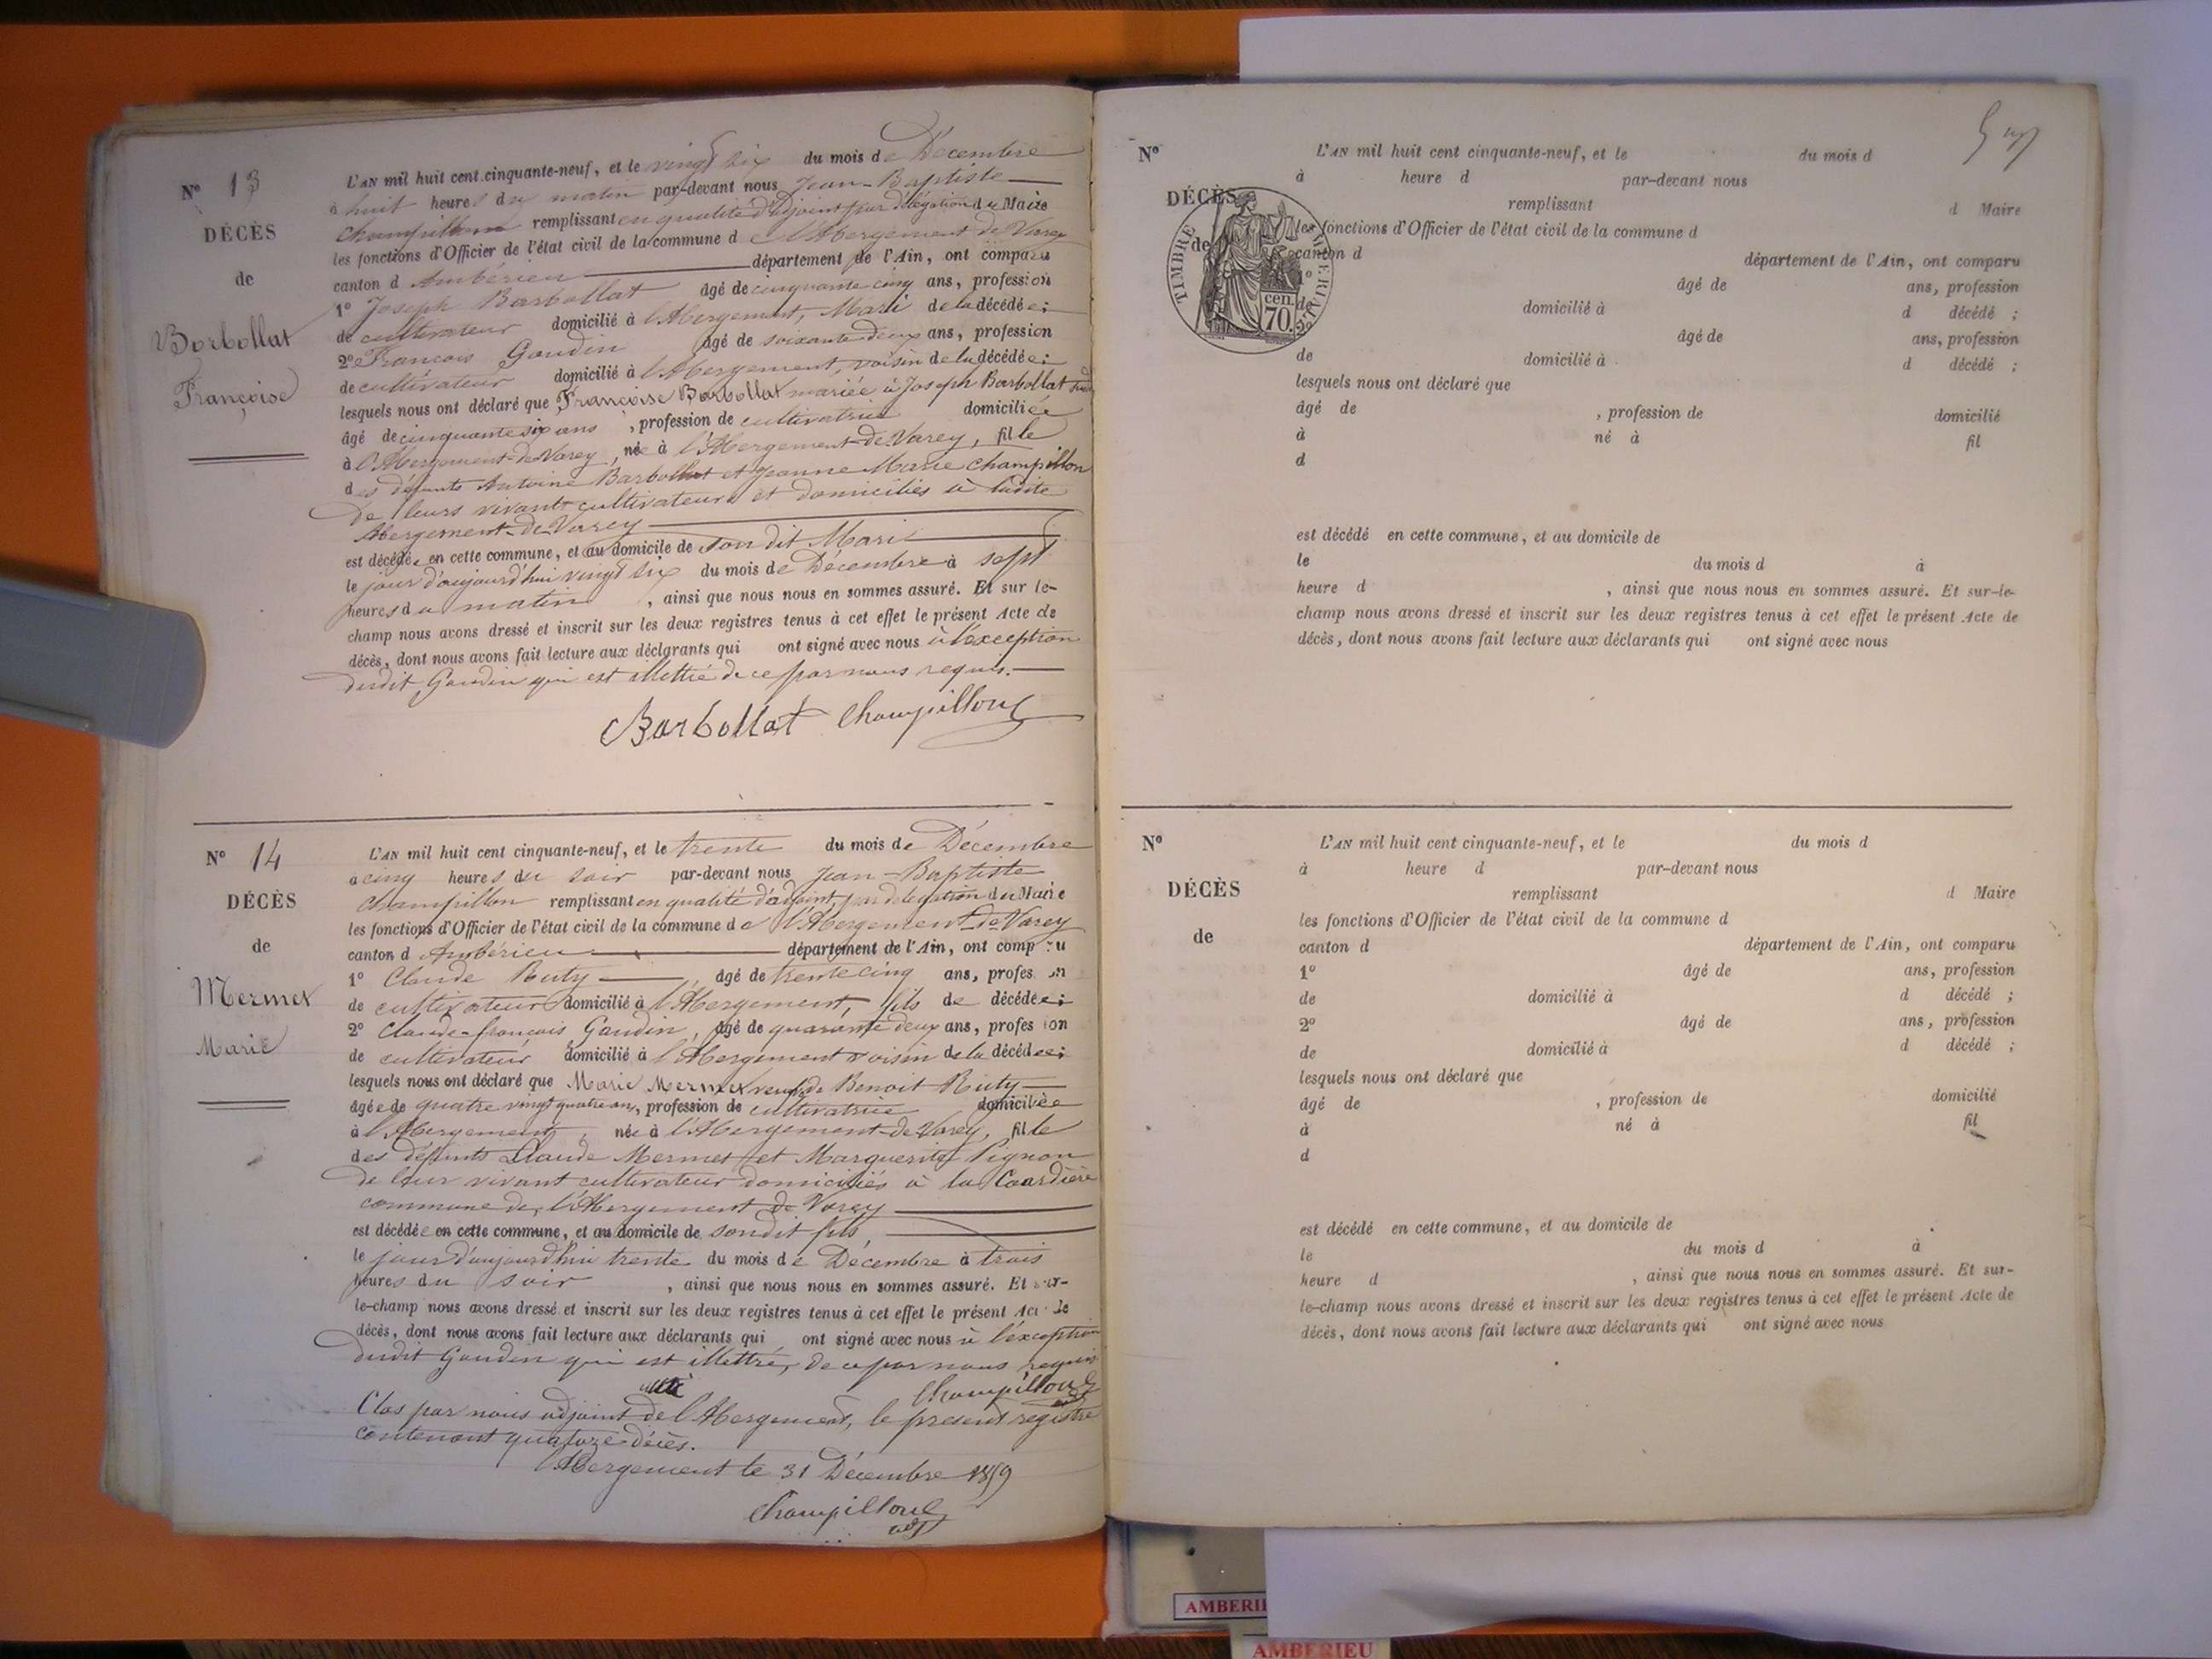 N° 13
DÉCÈS
de
Borbollat
Françoise
L'AN mil huit cent cinquante-neuf, et le vingt six du mois de Décembre
à huit heures du matin par-devant nous Jean-Baptiste
Champillon remplissant en qualité d'adjoint par délégation du Maire
les fonctions d'Officier de l'état civil de la commune de l'Abergement de Varey
canton d Ambérieu département de l'Ain, ont comparu
1° Joseph Barbollat âgé de cinquante cinq ans, profession
de cultivateur domicilié à l'Abergement, Mari de la décédée;
2° François Goudin âgé de soixante deux ans, profession
de cultivateur domicilié à l'Abergement, voisin de la décédée;
lesquels nous ont déclaré que Françoise Borbollat mariée à Joseph Barbollat
âgé de cinquante six ans, profession de cultivatrice domiciliée
à l'Abergement-de-Varey, née à l'Abergement-de-Varey, fille
des défunts Antoine Barbollat et Jeanne Marie Champillon
de leurs vivants cultivateurs et domiciliés à ladite
Abergement-de-Varey
est décédée en cette commune, et au domicile de son dit Mari
le jour d'aujourd'hui vingt six du mois de Décembre à sept
heures du matin, ainsi que nous nous en sommes assuré. Et sur le-
champ nous avons dressé et inscrit sur les deux registres tenus à cet effet le présent Acte de
décès, dont nous avons fait lecture aux déclarants qui ont signé avec nous à l'exception
dudit Goudin qui est illettré de ce par nous requis.
Barbollat Champillon
N° 14
DÉCÈS
de
Mermet
Marie
L'AN mil huit cent cinquante-neuf, et le trente du mois de Décembre
à cinq heures du soir par-devant nous Jean-Baptiste
Champillon remplissant en qualité d'adjoint, par délégation du Maire
les fonctions d'Officier de l'état civil de la commune de l'Abergement-de-Varey
canton d Ambérieu département de l'Ain, ont comparu
1° Claude Ruty, âgé de trente cinq ans, profession
de cultivateur domicilié à l'Abergement, fils de décédée;
2° Claude-françois Goudin, âgé de quarante deux ans, profession
de cultivateur domicilié à l'Abergement voisin de la décédée;
lesquels nous ont déclaré que Marie Mermet veuve de Benoit Ruty
âgée de quatre vingt quatre ans, profession de cultivatrice domiciliée
à l'Abergement, née à l'Abergement-de-Varey, fille
des défunts Claude Mermet et Marguerite Pignon
de leur vivant cultivateur domiciliés à la
commune de l'Abergement de Varey
est décédée en cette commune, et au domicile de sondit fils,
le jour d'aujourd'hui trente du mois de Décembre à trois
heures du soir, ainsi que nous nous en sommes assuré. Et sur-
le-champ nous avons dressé et inscrit sur les deux registres tenus à cet effet le présent Acte de
décès, dont nous avons fait lecture aux déclarants qui ont signé avec nous à l'exception
dudit Goudin qui est illettré, de ce par nous requis
Champillon
Clos par nous adjoint de l'Abergement, le présent registre
contenant quatorze décès.
l'Abergement le 31 Décembre 1859
Champillon
adjt
N°
DÉCÈS
de
TIMBRE IMPERIAL
70 cen.
L'AN mil huit cent cinquante-neuf, et le du mois d
à heure d par-devant nous
remplissant d Maire
les fonctions d'Officier de l'état civil de la commune d
canton d département de l'Ain, ont comparu
1° âgé de ans, profession
de domicilié à d décédé ;
2° âgé de ans, profession
de domicilié à d décédé ;
lesquels nous ont déclaré que
âgé de , profession de domicilié
à né à fil
d
est décédé en cette commune, et au domicile de
le du mois d à
heure d , ainsi que nous nous en sommes assuré. Et sur-le-
champ nous avons dressé et inscrit sur les deux registres tenus à cet effet le présent Acte de
décès, dont nous avons fait lecture aux déclarants qui ont signé avec nous
N°
DÉCÈS
de
L'AN mil huit cent cinquante-neuf, et le du mois d
à heure d par-devant nous
remplissant d Maire
les fonctions d'Officier de l'état civil de la commune d
canton d département de l'Ain, ont comparu
1° âgé de ans, profession
de domicilié à d décédé ;
2° âgé de ans, profession
de domicilié à d décédé ;
lesquels nous ont déclaré que
âgé de , profession de domicilié
à né à fil
d
est décédé en cette commune, et au domicile de
le du mois d à
heure d , ainsi que nous nous en sommes assuré. Et sur-
le-champ nous avons dressé et inscrit sur les deux registres tenus à cet effet le présent Acte de
décès, dont nous avons fait lecture aux déclarants qui ont signé avec nous
AMBERIE
AMBERIEU